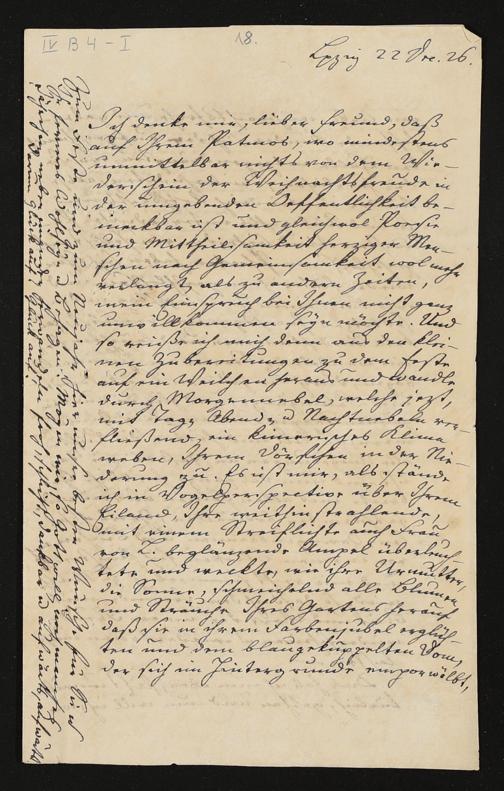 IV B 4 - I
18.
Lpzig 22 Dec. 26.
Ich denke mir, lieber Freund, daß
auf Ihrem Patmos, wo mindestens
unmittelbar nichts von dem Wie-
derschein der Weihnachtsfreude in
der umgebenden Oeffentlichkeit be-
merkbar ist und gleichwol Poesie
und Mittheilsamkeit herziger Men-
schen nach Gemeinsamkeit wol mehr
verlangt, als zu andern Zeiten,
mein Einspruch bei Ihnen nicht ganz
unwillkommen seyn möchte. Und
so reiß ich mich denn aus den klei-
nen Zubereitungen zu dem Feste
auf ein Weilchen heraus und wandle
durch Morgennebel, welche jetzt,
mit Tag- Abend- u Nachtnebeln ver-
fließend, ein kimerisches Klima
weben, Ihrem Dörfchen in der Nie-
derung zu. Es ist mir, als stände
ich in Vogelperspective über Ihrem
Eiland, Ihre weithinstrahlende,
mit einem Streiflichte auch Frau
von L. beglänzende Ampel überleuch-
tete und weckte, wie ihre Urmutter,
die Sonne, schmeichelnd alle Blumen
und Sträuche Ihres Gartens herauf
daß sie in ihrem Farbenjubel erglüh-
ten und dem blaugekuppelten Dom,
der sich im Hintergrunde emporwölbt,
Zum Feste und zum Neujahr